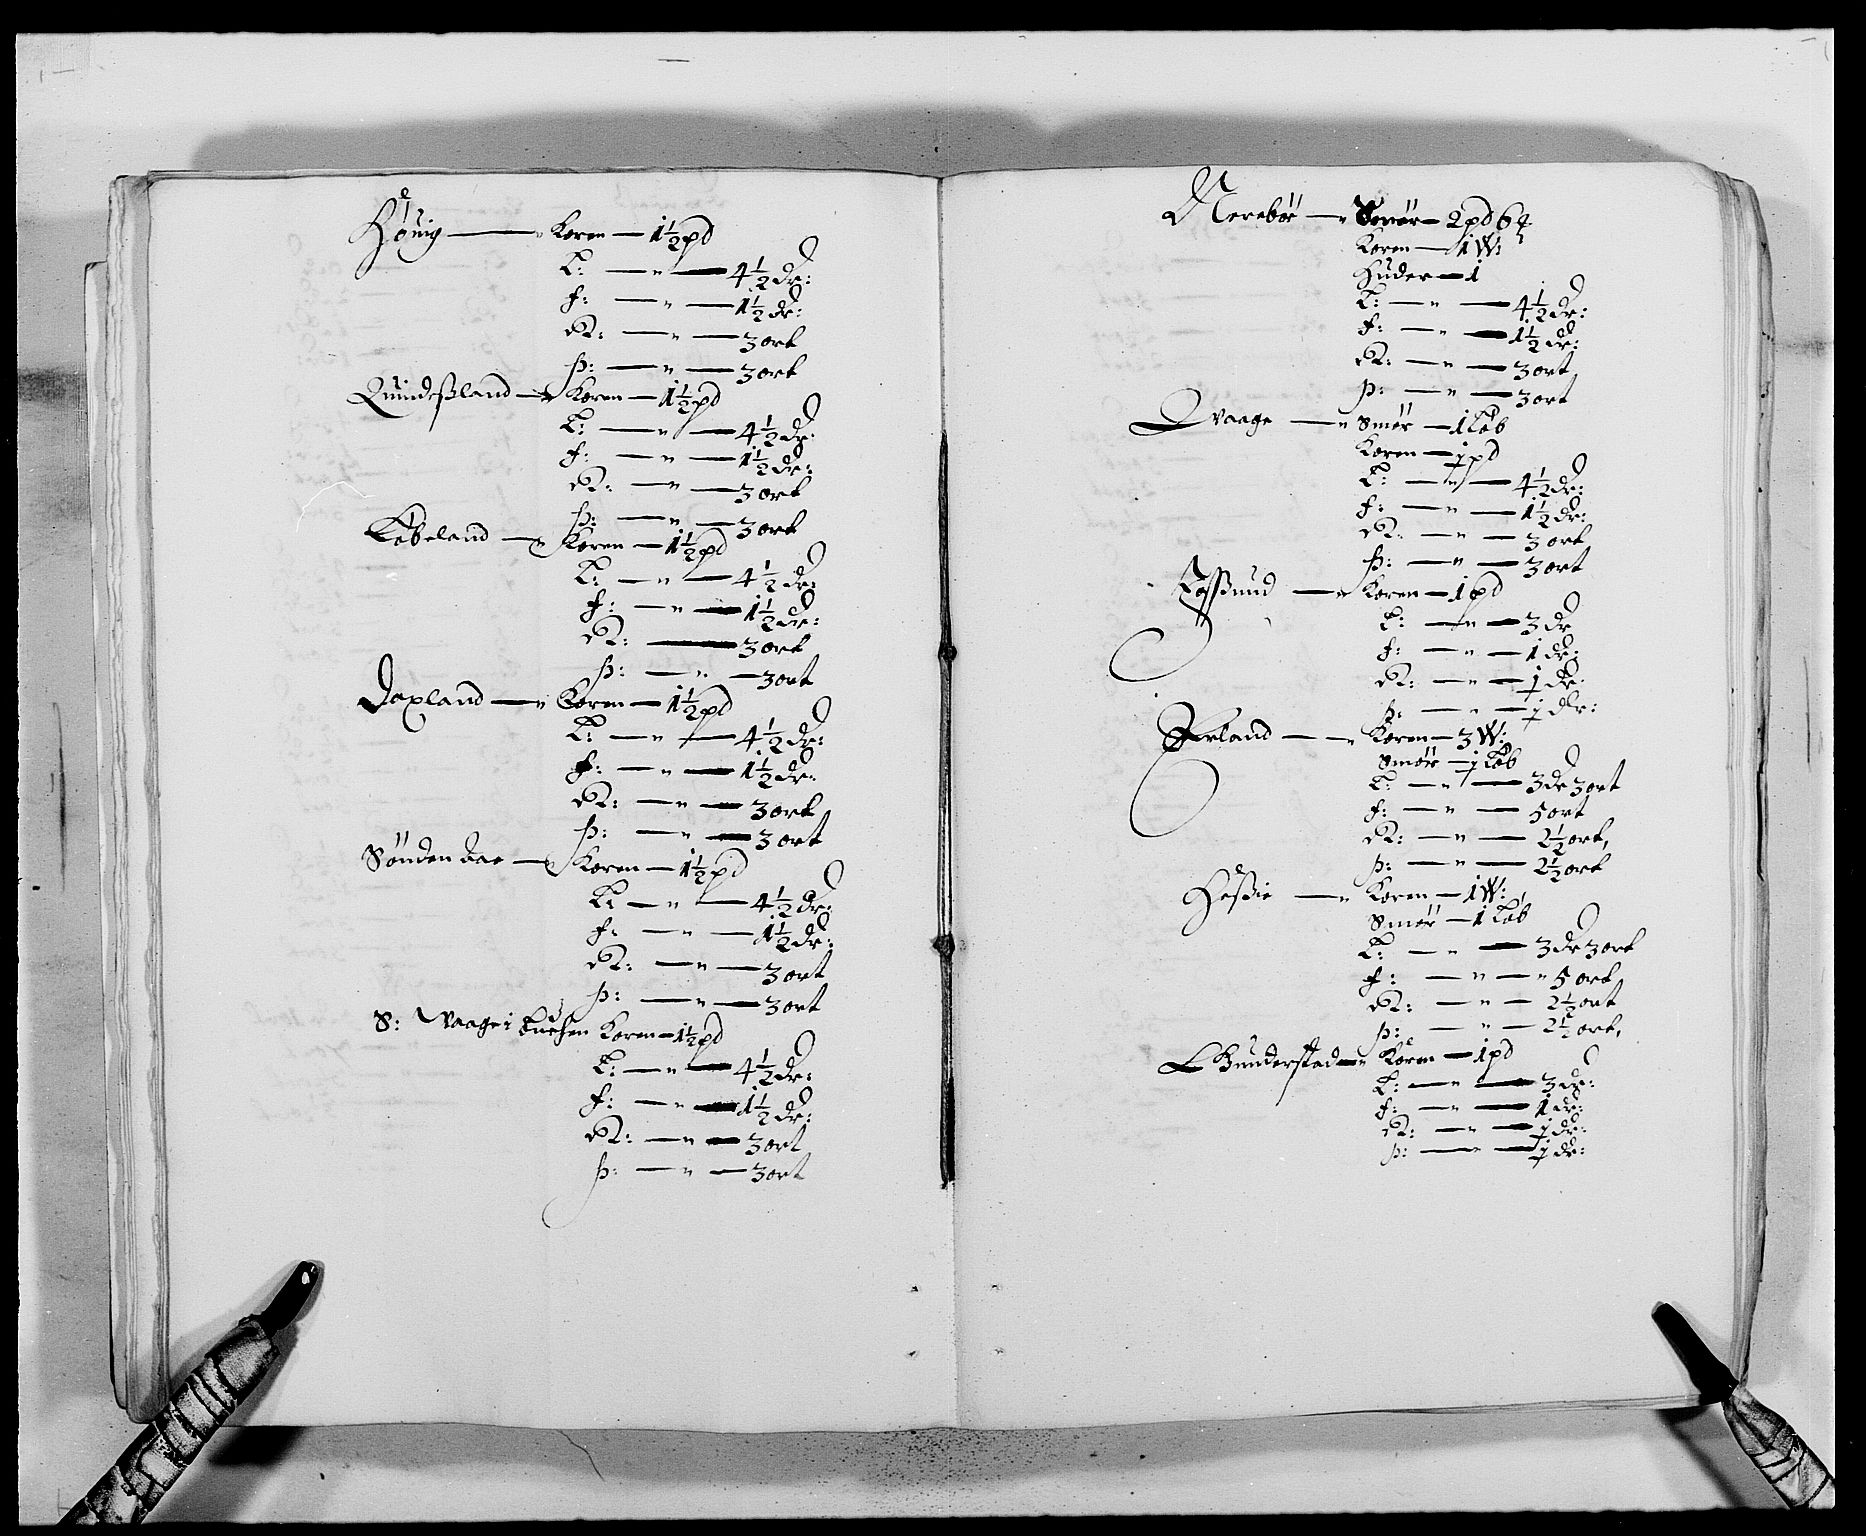 Høuig — Koren — 1½ pd
L: — 4½ dr:
f: — 1½ dr:
R: — 3 ort
þ: — 3 ort
Quindeßland — Koren — 1½ pd
L: — 4½ dr:
f: — 1½ dr:
R: — 3 ort
þ: — 3 ort
Løbeland — Koren — 1½ pd
L: — 4½ dr:
f: — 1½ dr:
R: — 3 ort
þ: — 3 ort
Doxland — Koren — 1½ pd
L: — 4½ dr:
f: — 1½ dr:
R: — 3 ort
þ: — 3 ort
Sønden aae — Koren — 1½ pd
L: — 4½ dr:
f: — 1½ dr:
R: — 3 ort
þ: — 3 ort
S: Waage i Koren — 1½ pd
L: — 4½ dr:
f: — 1½ dr:
R: — 3 ort
þ: — 3 ort
Nerebør — Smør — 2 pd 6
Koren — 1 W:
Huder — 1
L: — 4½ dr:
f: — 1½ dr:
R: — 3 ort
þ: — 3 ort
Qvaage — Smør — 1 Løb
Koren — ½ pd
L: — 4½ dr:
f: — 1½ dr:
R: — 3 ort
þ: — 3 ort
Foßsund — Koren — 1 pd
L: — 3 dr
f: — 1 dr:
R: — ½ dr:
þ: — ½ dlr:
Erland — Koren — 3 W:
Smør — ½ Løb
L: — 3 dr 3 ort
f: — 5 ort
R: — 2½ ort,
þ: — 2½ ort
Heßie — Koren — 1 W:
Smør — 1 Løb
L: — 3 dr 3 ort
f: — 5 ort
R: — 2½ ort
þ: — 2½ ort,
Gunderstad — Koren — 1 pd
L: — 3 dr:
f: — 1 dr:
R: — ½ dr:
þ: — ½ dr: